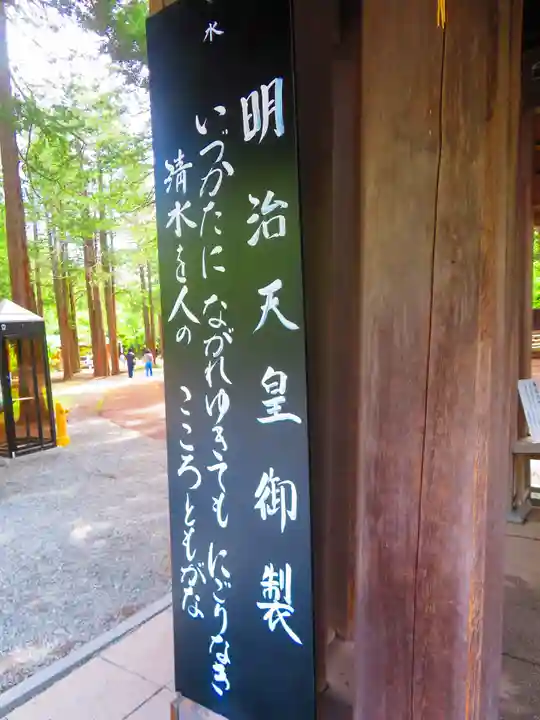 明治天皇御製
水
いづかたに ながれゆきても にごりなき
清水を人の こころともがな